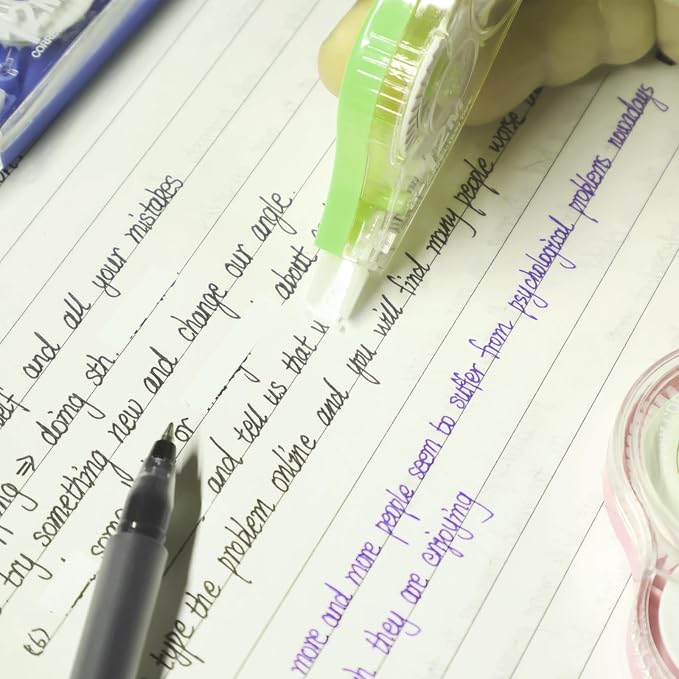 12M
CORRE
self and all your mistakes
⇒ doing sth.
try something new and change our angle.
some or about
and tell us that
(6) type the problem online and you will find many people worse
more and more people seem to suffer from psychological problems nowadays
they are enjoying